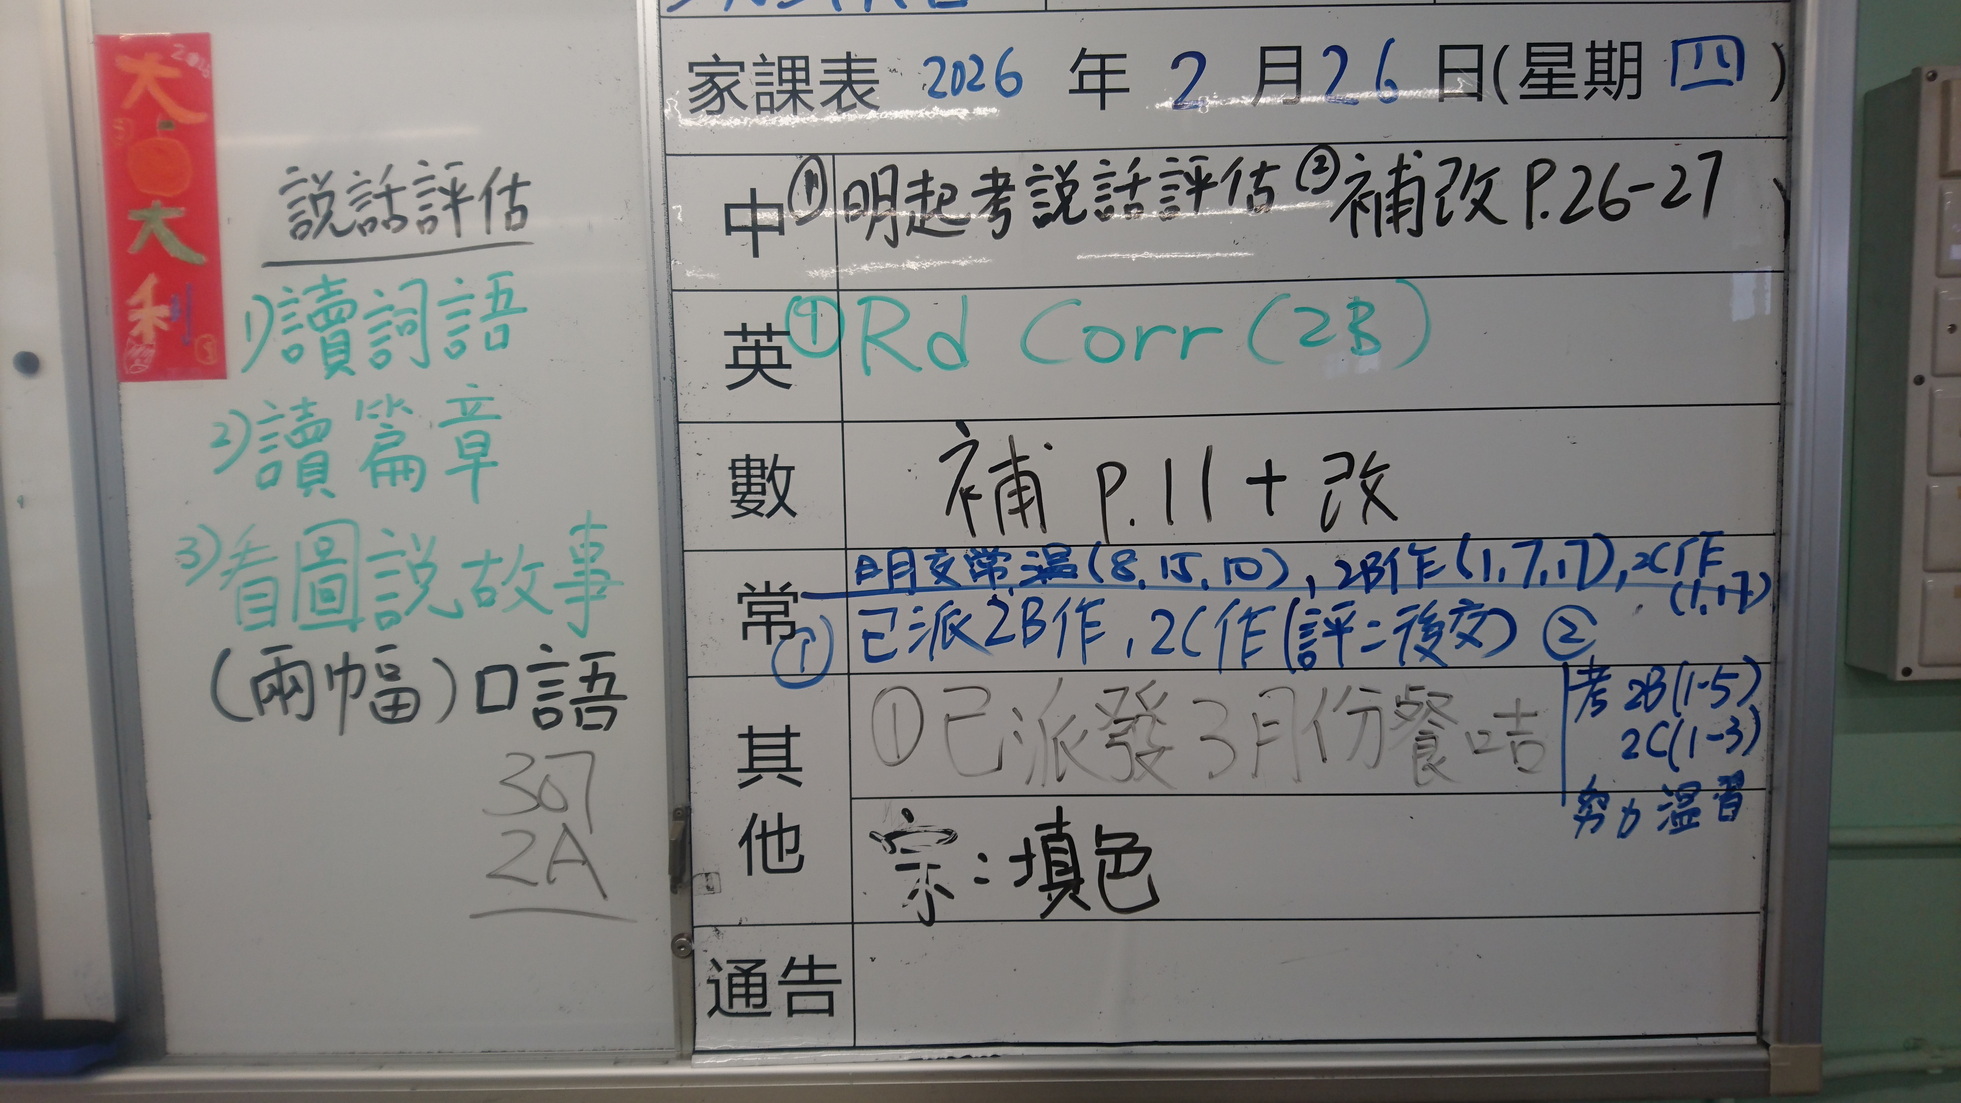 大
大
利
説話評估
1)讀詞語
2)讀篇章
3)看圖説故事
(兩幅)口語
307
2A
家課表 2026 年 2 月 26 日(星期 四 )
中 ① 明起考説話評估 ② 補改 P.26-27
英 ① Rd Corr (2B)
數 補 P.11 + 改
常 明交常温(8,15,10), 2B作(1,7,17), 2C作
(1,17)
① 已派2B作, 2C作(評二後交) ②
考 2B(1-5)
2C(1-3)
努力温習
其他 ①已派發3月份餐咭
宗:填色
通告